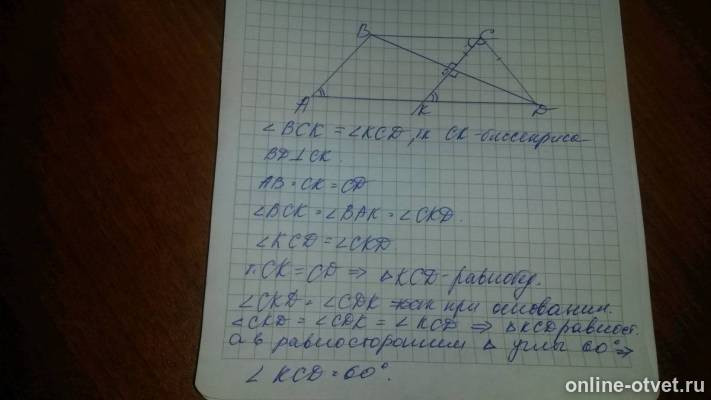 B C
A K D
∠BCK = ∠KCD, тк CK - биссектриса
BD⊥CK.
AB = CK = CD
∠BCK = ∠BAK = ∠CKD.
∠KCD = ∠CKD.
т. CK = CD ⇒ △KCD - равнобед.
∠CKD = ∠CDK как при основании.
∠CKD = ∠CDK = ∠KCD ⇒ △KCD равност.
а в равностороннем △ углы 60° ⇒
∠KCD = 60°.
online-otvet.ru